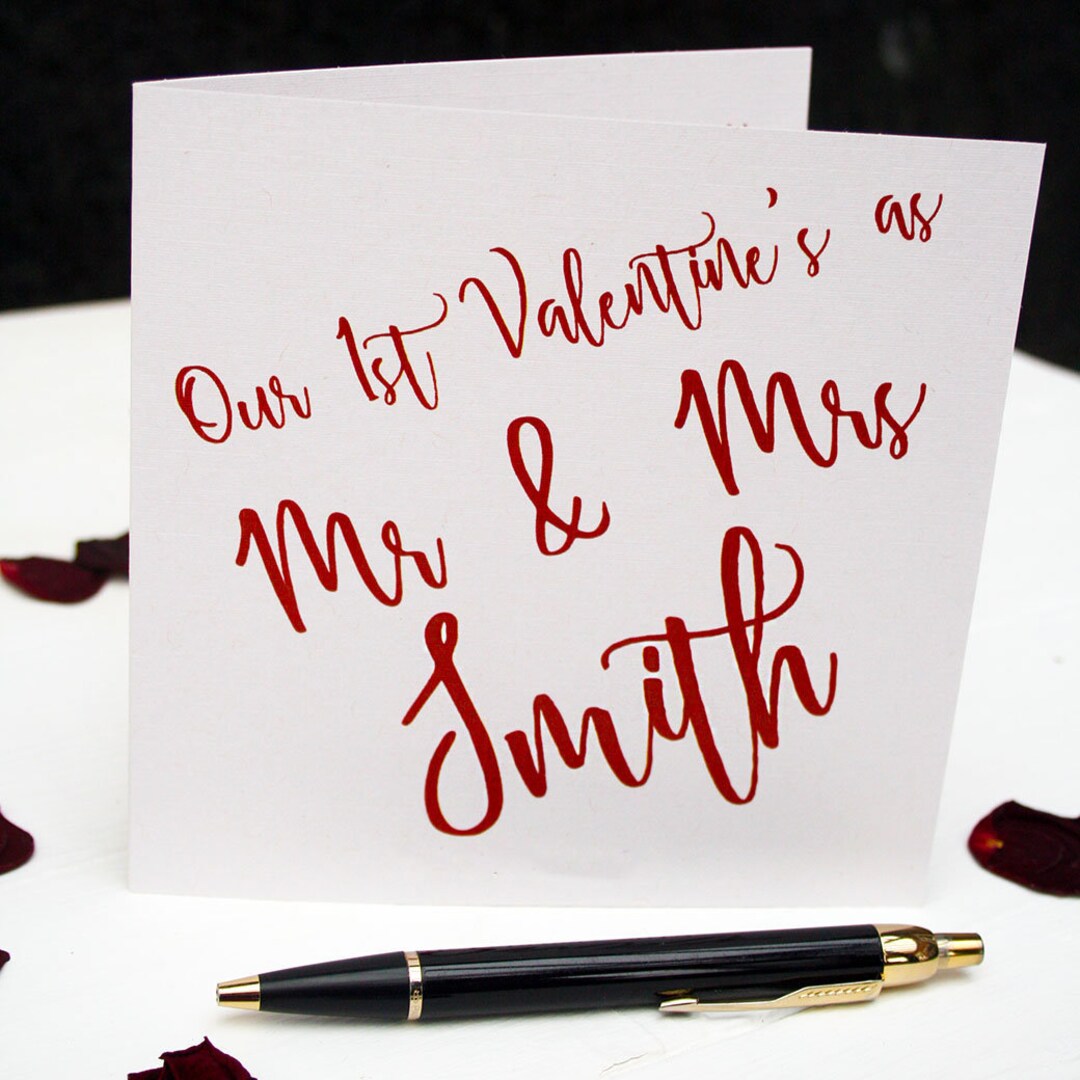 Our 1st Valentine's as
Mr & Mrs
Smith